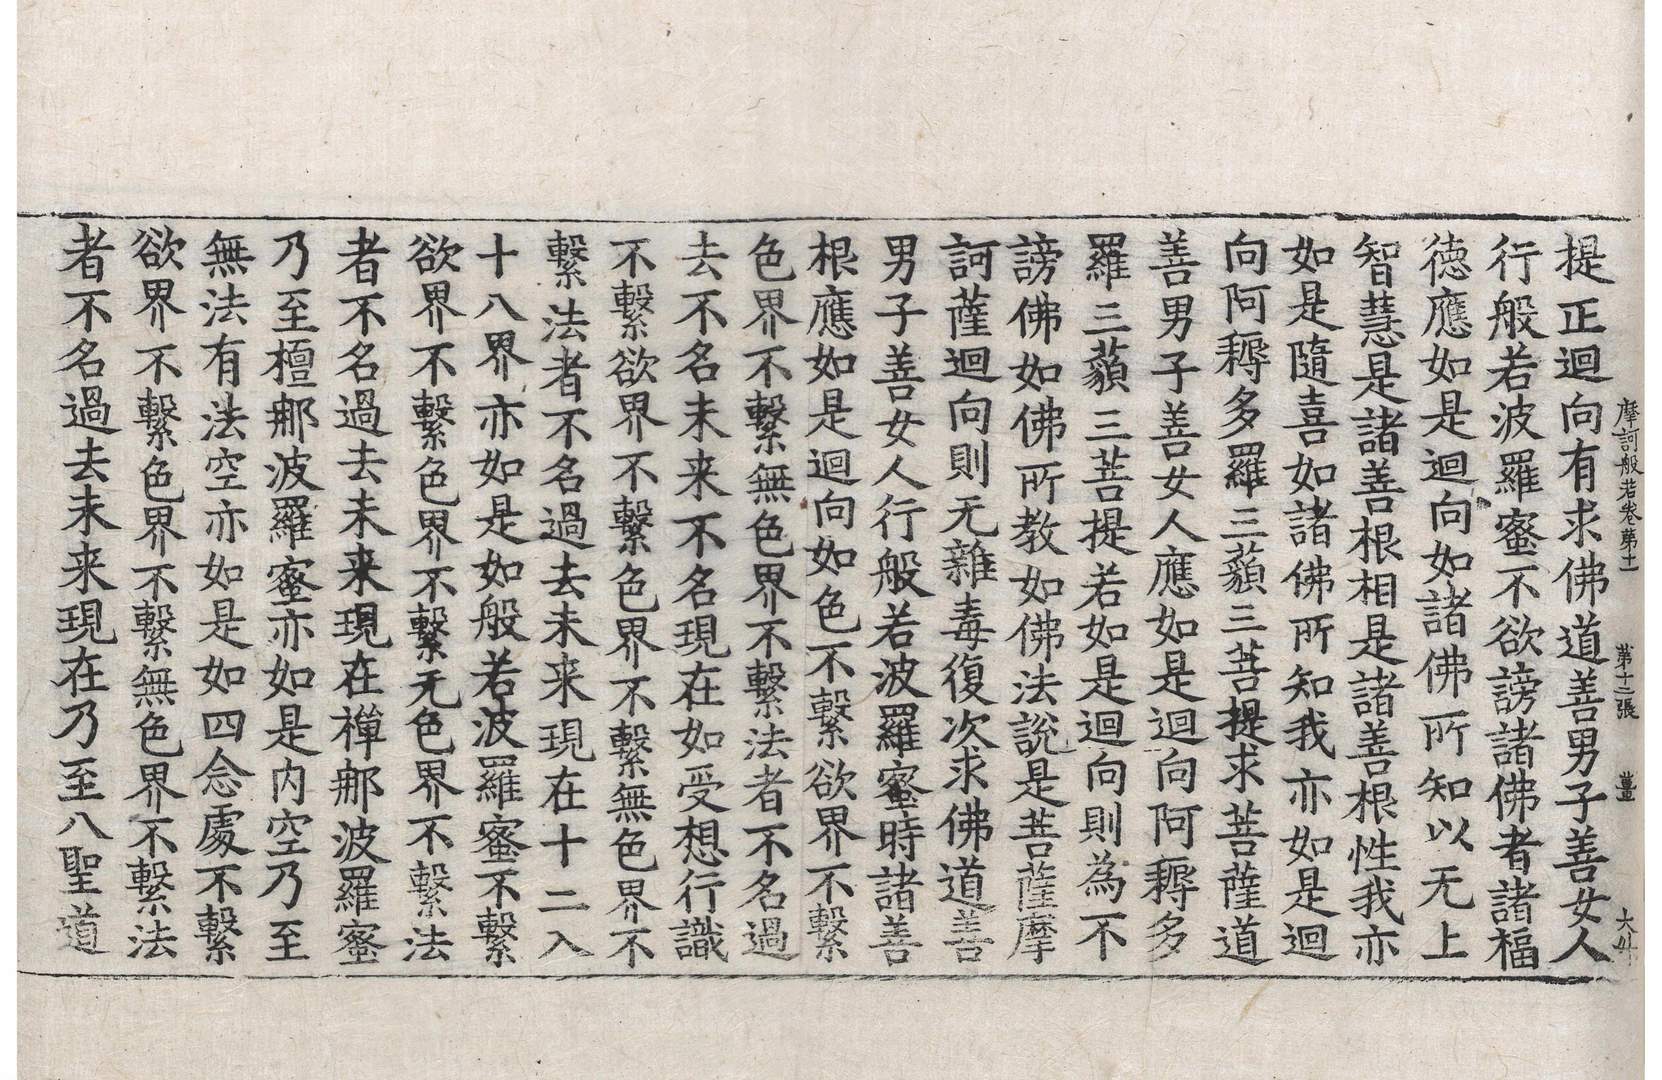 摩訶般若卷第十一 第十二張 薑
提正迴向有求佛道善男子善女人
行般若波羅蜜不欲謗諸佛者諸福
德應如是迴向如諸佛所知以无上
智慧是諸善根相是諸善根性我亦
如是隨喜如諸佛所知我亦如是迴
向阿耨多羅三藐三菩提求菩薩道
善男子善女人應如是迴向阿耨多
羅三藐三菩提若如是迴向則為不
謗佛如佛所教如佛法說是菩薩摩
訶薩迴向則无雜毒復次求佛道善
男子善女人行般若波羅蜜時諸善
根應如是迴向如色不繫欲界不繫
色界不繫無色界不繫法者不名過
去不名未来不名現在如受想行識
不繫欲界不繫色界不繫無色界不
繫法者不名過去未来現在十二入
十八界亦如是如般若波羅蜜不繫
欲界不繫色界不繫无色界不繫法
者不名過去未来現在禪那波羅蜜
乃至檀那波羅蜜亦如是内空乃至
無法有法空亦如是如四念處不繫
欲界不繫色界不繫無色界不繫法
者不名過去未来現在乃至八聖道